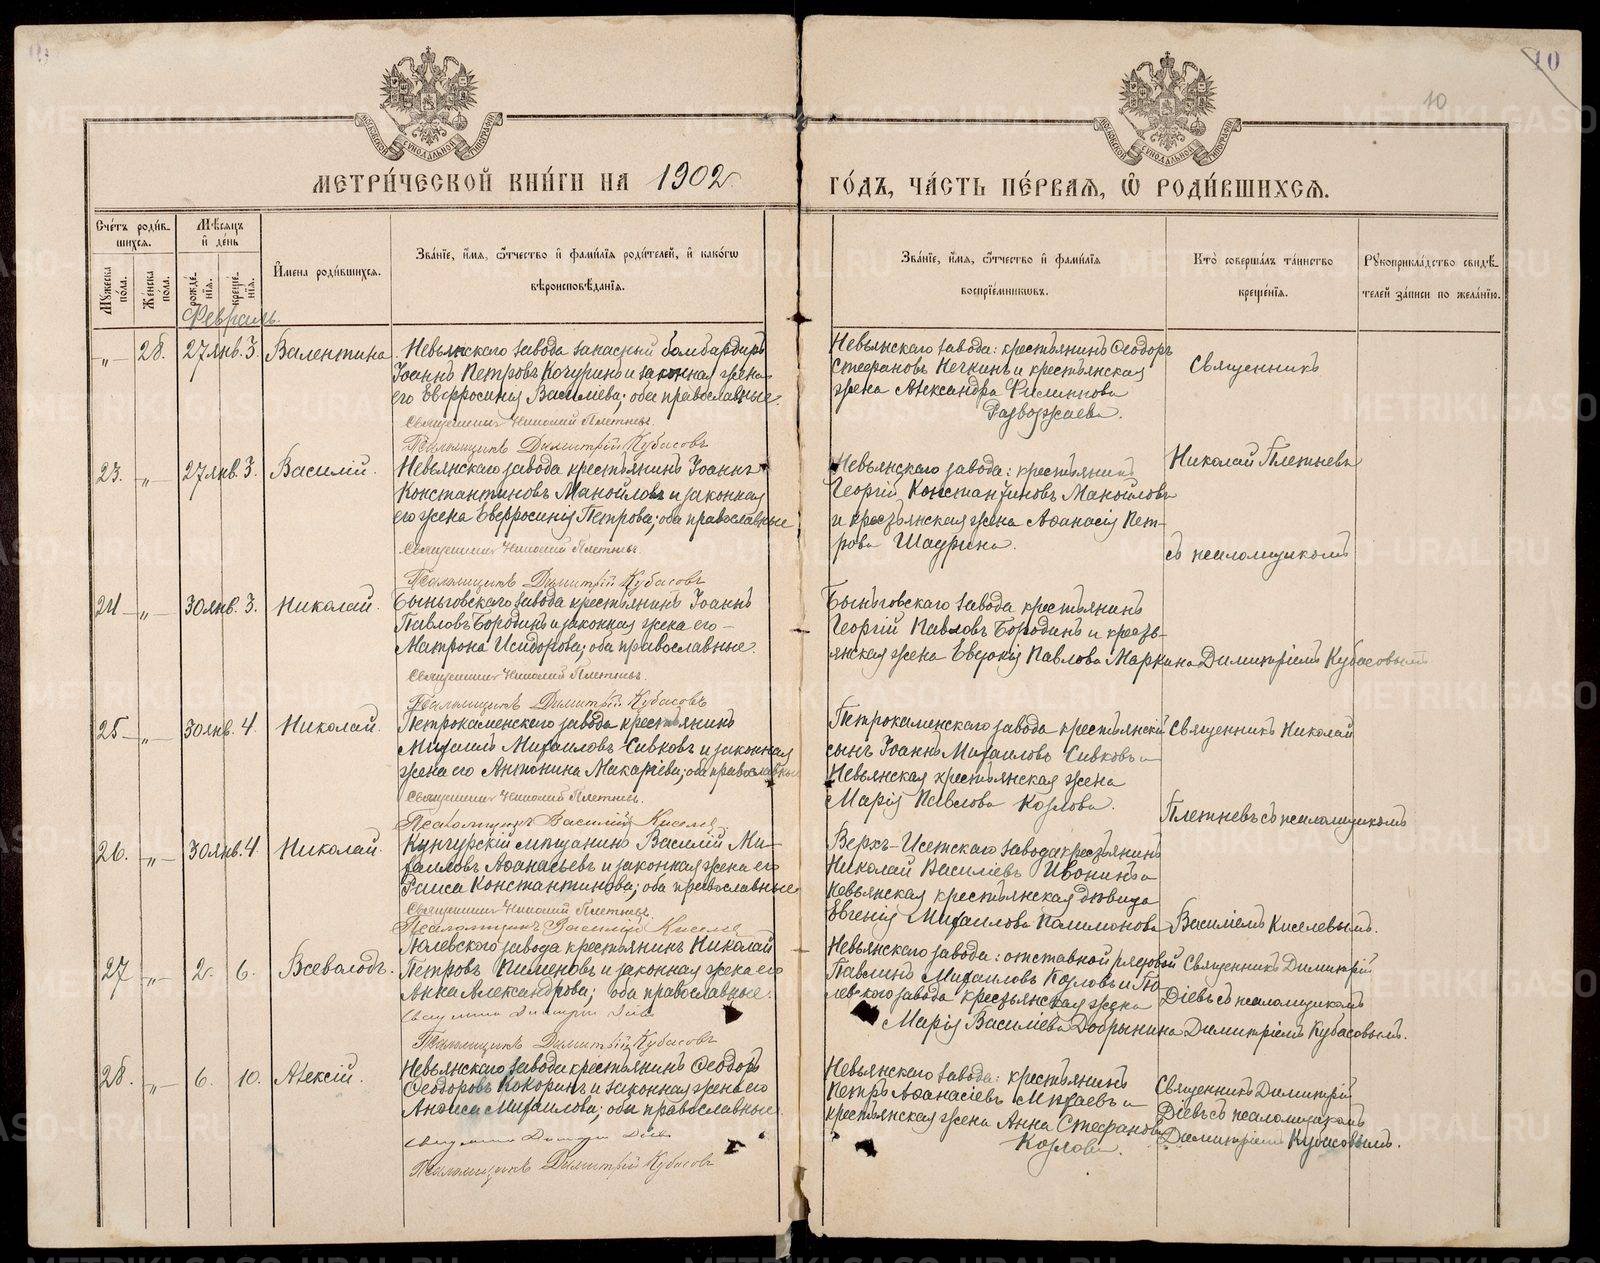 10
10
МЕТРИ́ЧЕСКОЙ КНИ́ГИ НА 1902 ГО́ДЪ, ЧА́СТЬ ПЕ́РВАѦ, Ѡ҆ РОДИ́ВШИХСѦ.
Сче́тъ роди́в-
шихся.
Мѣ́сяцъ
и҆ де́нь
Му́жеска по́ла.
Же́нска по́ла.
рожде́-
нія.
креще́-
нія.
И҆мена роди́вшихся.
Зва́ніе, и҆́мя, ѻ҆́тчество и҆ фами́лія роди́телей, и҆ како́гѡ
вѣроисповѣ́данія.
Зва́ніе, и҆́мя, ѻ҆́тчество и҆ фами́лія
воспріе́мниковъ.
Кто̀ соверша́лъ та́инство
креще́нія.
Рꙋкоприкла́дство свидѣ́-
телей за́писи по жела́нію.
Февраль.
„ 28. 27 янв. 3. Валентина.
Невьянскаго завода запасный бомбардиръ
Іоаннъ Петровъ Кочуринъ и законная жена
его Евфросинія Василіева; оба православные.
Священникъ Николай Плетневъ.
Псаломщикъ Димитрій Кубасовъ
Невьянскаго завода: крестьянинъ Ѳеодоръ
Стефановъ Кечкинъ и крестьянская
жена Александра Филиппова
Развозжаева.
Священникъ
23. „ 27 янв. 3. Василій.
Невьянскаго завода крестьянинъ Іоаннъ
Константиновъ Манойловъ и законная
его жена Евфросинія Петрова; оба православные
Священникъ Николай Плетневъ.
Псаломщикъ Димитрій Кубасовъ
Невьянскаго завода: крестьянинъ
Георгій Константиновъ Манойловъ
и крестьянская жена Аѳанасія Пет-
рова Шаурина.
Николай Плетневъ
съ псаломщикомъ
24 „ 30 янв. 3. Николай.
Быньговскаго завода крестьянинъ Іоаннъ
Павловъ Бородинъ и законная жена его
Матрона Исидорова; оба православные.
Священникъ Николай Плетневъ.
Псаломщикъ Димитрій Кубасовъ
Быньговскаго завода крестьянинъ
Георгій Павловъ Бородинъ и кресть-
янская жена Евдокія Павлова Маркина
Димитріемъ Кубасовымъ
25 „ 30 янв. 4. Николай.
Петрокаменскаго завода крестьянинъ
Михаилъ Михаиловъ Сивковъ и законная
жена его Антонина Макаріева; оба православные
Священникъ Николай Плетневъ.
Псаломщикъ Василій Киселевъ
Петрокаменскаго завода крестьянскій
сынъ Іоаннъ Михаиловъ Сивковъ и
Невьянская крестьянская жена
Марія Павлова Козлова.
Священникъ Николай
Плетневъ съ псаломщикомъ
26. „ 30 янв. 4. Николай.
Кунгурскій мѣщанинъ Василій Ми-
хаиловъ Аѳанасьевъ и законная жена его
Раиса Константинова; оба православные
Священникъ Николай Плетневъ.
Псаломщикъ Василій Киселевъ
Верхъ-Исетскаго завода крестьянинъ
Николай Василіевъ Ивонинъ и
Невьянская крестьянская дѣвица
Евгенія Михаилова Палимонова
Василіемъ Киселевымъ.
27 „ 2. 6. Всеволодъ.
Петровъ Пименовъ и законная жена его
Анна Александрова; оба православные.
Псаломщикъ Димитрій Кубасовъ
Невьянскаго завода: отставной рядовой
Павлинъ Михаиловъ Козловъ и
завода крестьянская жена
Марія Василіева Добрынина
Священникъ Димитрій
Діевъ съ псаломщикомъ
Димитріемъ Кубасовымъ.
28. „ 6. 10. Алексій.
Невьянскаго завода крестьянинъ Ѳеодоръ
Ѳеодоровъ Кокоринъ и законная жена его
Анѳиса Михаилова; оба православные
Псаломщикъ Димитрій Кубасовъ
Невьянскаго завода: крестьянинъ
Петръ Аѳанасіевъ Минаевъ и
крестьянская жена Анна Стефанова
Козлова.
Священникъ Димитрій
Діевъ съ псаломщикомъ
Димитріемъ Кубасовымъ.
METRIKI.GASO-URAL.RU